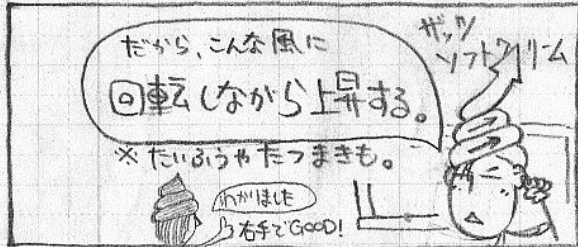 だから、こんな風に
回転しながら上昇する。
※たいふうやたつまきも。
ザッツ
ソフトクリーム
わかりました
右手でGOOD!